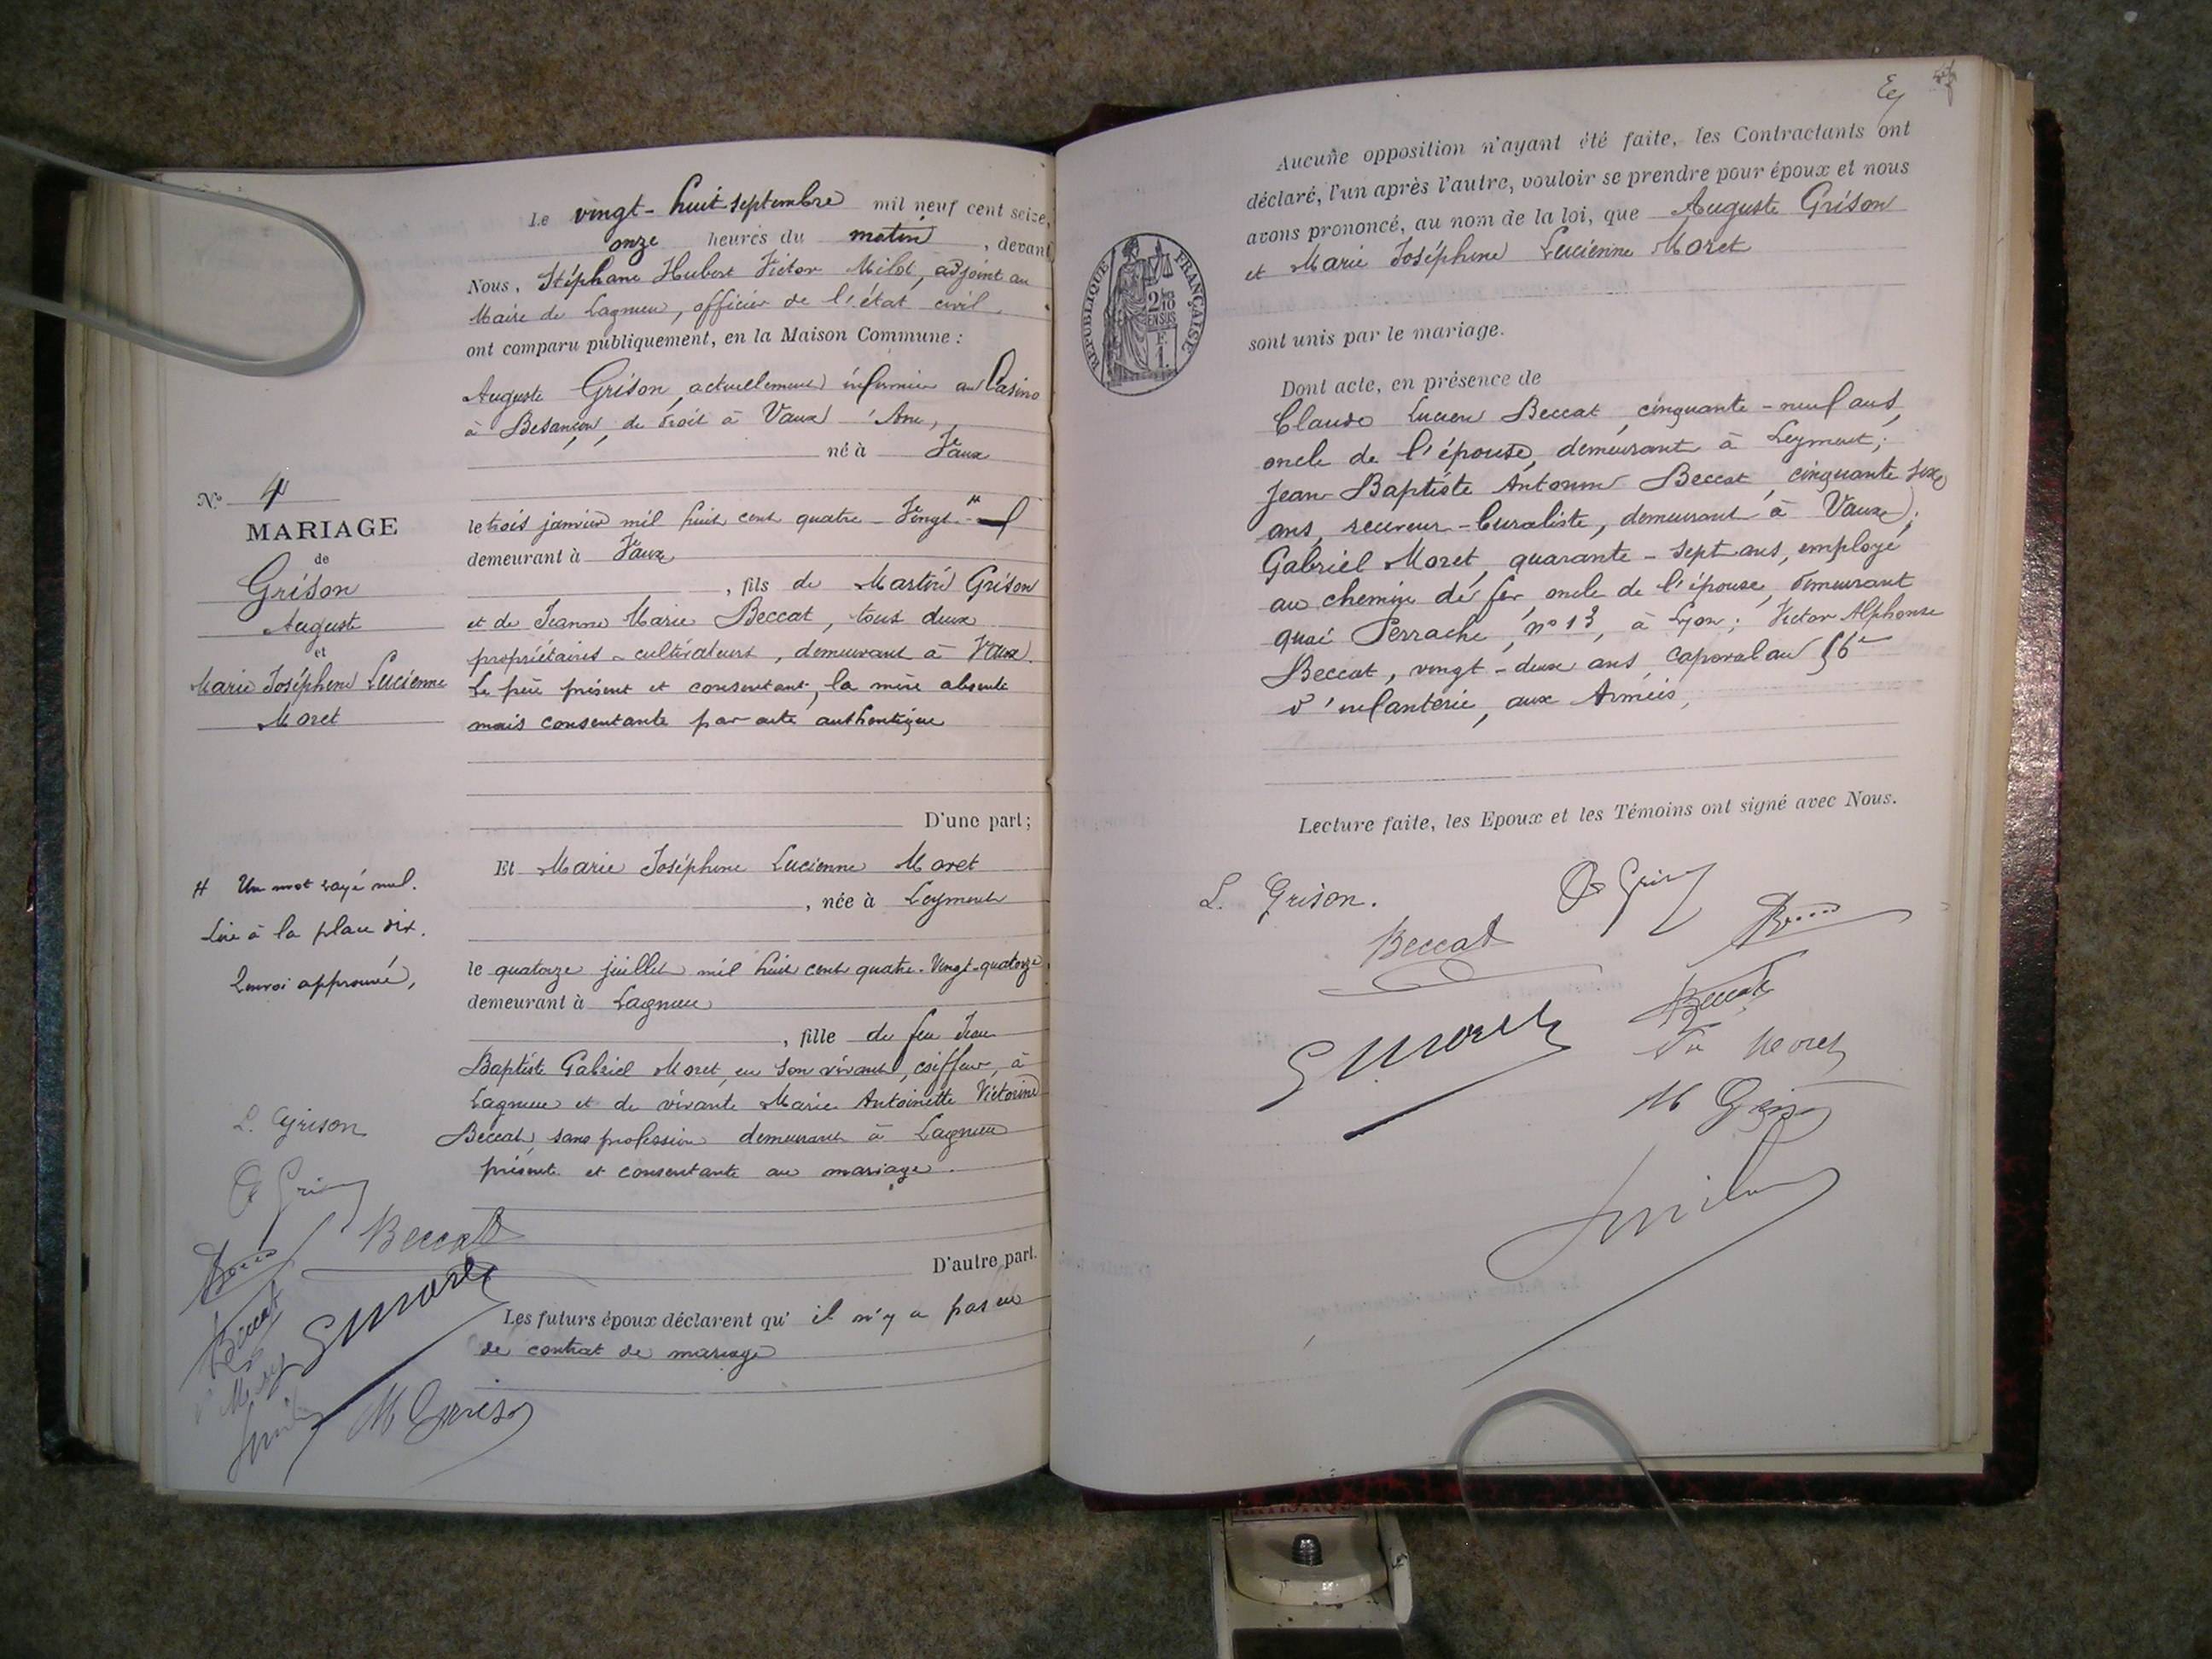 Le vingt-huit septembre mil neuf cent seize,
onze heures du matin, devant
Nous, Stéphane Hubert Victor Milot, adjoint au
Maire de Lagnieu, officier de l'état civil,
ont comparu publiquement, en la Maison Commune :
Auguste Grison, actuellement infirmier au Casino
à Besançon, de droit à Vaux Ain,
né à Vaux
le trois janvier mil huit cent quatre-vingt-#
demeurant à Vaux
, fils de Martin Grison
et de Jeanne Marie Beccat, tous deux
propriétaires-cultivateurs, demeurant à Vaux.
Le père présent et consentant, la mère absente
mais consentante par acte authentique
D'une part;
Et Marie Joséphine Lucienne Moret
, née à Leyment
le quatorze juillet mil huit cent quatre-vingt-quatorze
demeurant à Lagnieu
, fille de feu Jean
Baptiste Gabriel Moret, en son vivant, coiffeur, à
Lagnieu et de vivante Marie Antoinette Victorine
Beccat, sans profession demeurant à Lagnieu
présente et consentante au mariage.
D'autre part.
Les futurs époux déclarent qu'il n'y a pas eu
de contrat de mariage
N° 4
MARIAGE
de
Grison
Auguste
et
Marie Joséphine Lucienne
Moret
# Un mot rayé nul.
Lire à la place dix.
Renvoi approuvé,
L. Grison
A Grison
Beccat
Beccat
G Moret
M Grison
Aucune opposition n'ayant été faite, les Contractants ont
déclaré, l'un après l'autre, vouloir se prendre pour époux et nous
avons prononcé, au nom de la loi, que Auguste Grison
et Marie Joséphine Lucienne Moret
sont unis par le mariage.
RÉPUBLIQUE FRANÇAISE
2/10
EN SUS
F.
1.
Dont acte, en présence de
Claude Lucien Beccat, cinquante-neuf ans,
oncle de l'épouse, demeurant à Leyment;
Jean-Baptiste Antonin Beccat, cinquante six
ans, receveur-buraliste, demeurant à Vaux;
Gabriel Moret, quarante-sept ans, employé
au chemin de fer oncle de l'épouse, demeurant
quai Perrache, n° 13, à Lyon; Victor Alphonse
Beccat, vingt-deux ans, caporal au 56e
d'infanterie, aux Armées,
Lecture faite, les Epoux et les Témoins ont signé avec Nous.
L. Grison.
A Grison
Beccat
Beccat
G Moret
Moret
M Grison